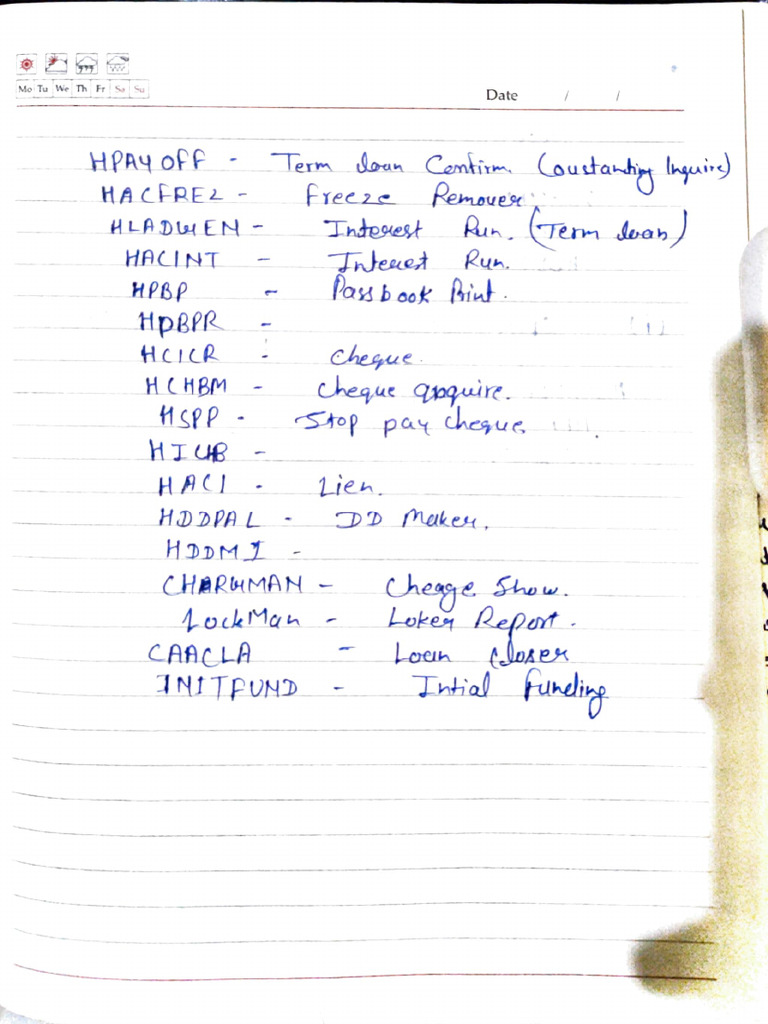 Mo Tu We Th Fr Sa Su
Date / /
HPAYOFF - Term loan Confirm. (oustanding Inquire)
HACFREZ - Freeze Remover.
HLADGEN - Interest Run. (Term loan)
HACINT - Interest Run.
HPBP - Passbook Print.
HPBPR -
HCICR - cheque.
HCHBM - cheque enquire.
HSPP - Stop pay cheque.
HIUB -
HACI - Lien.
HDDPAL - DD Maker.
HDDMI -
CHARGMAN - Cheage Show.
LockMan - Loker Report.
CAACLA - Loan closer
INITFUND - Intial funding